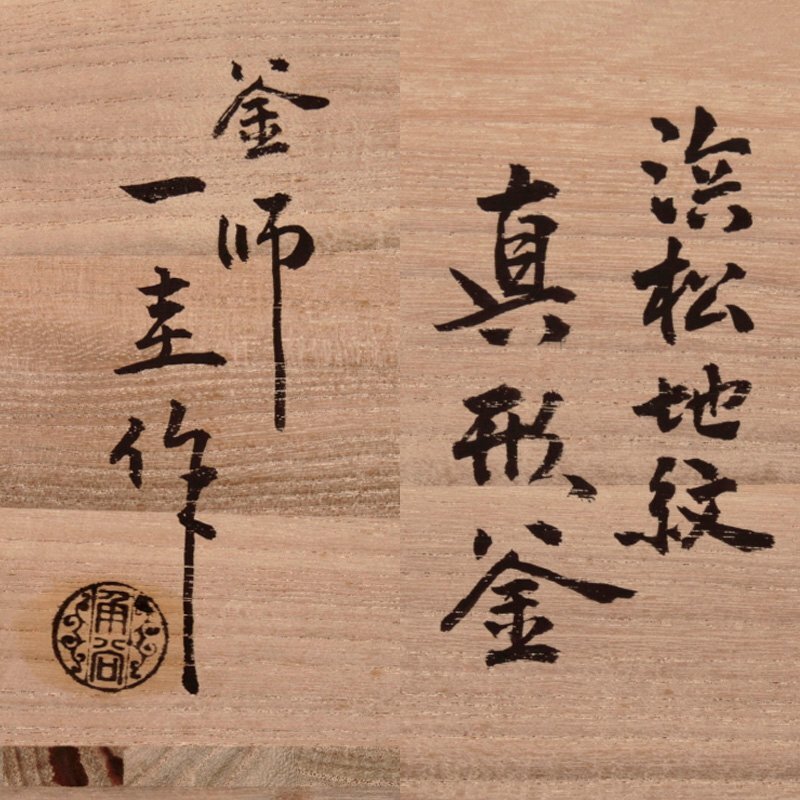 浜松地紋
真形釜
釜師
一圭作
角谷